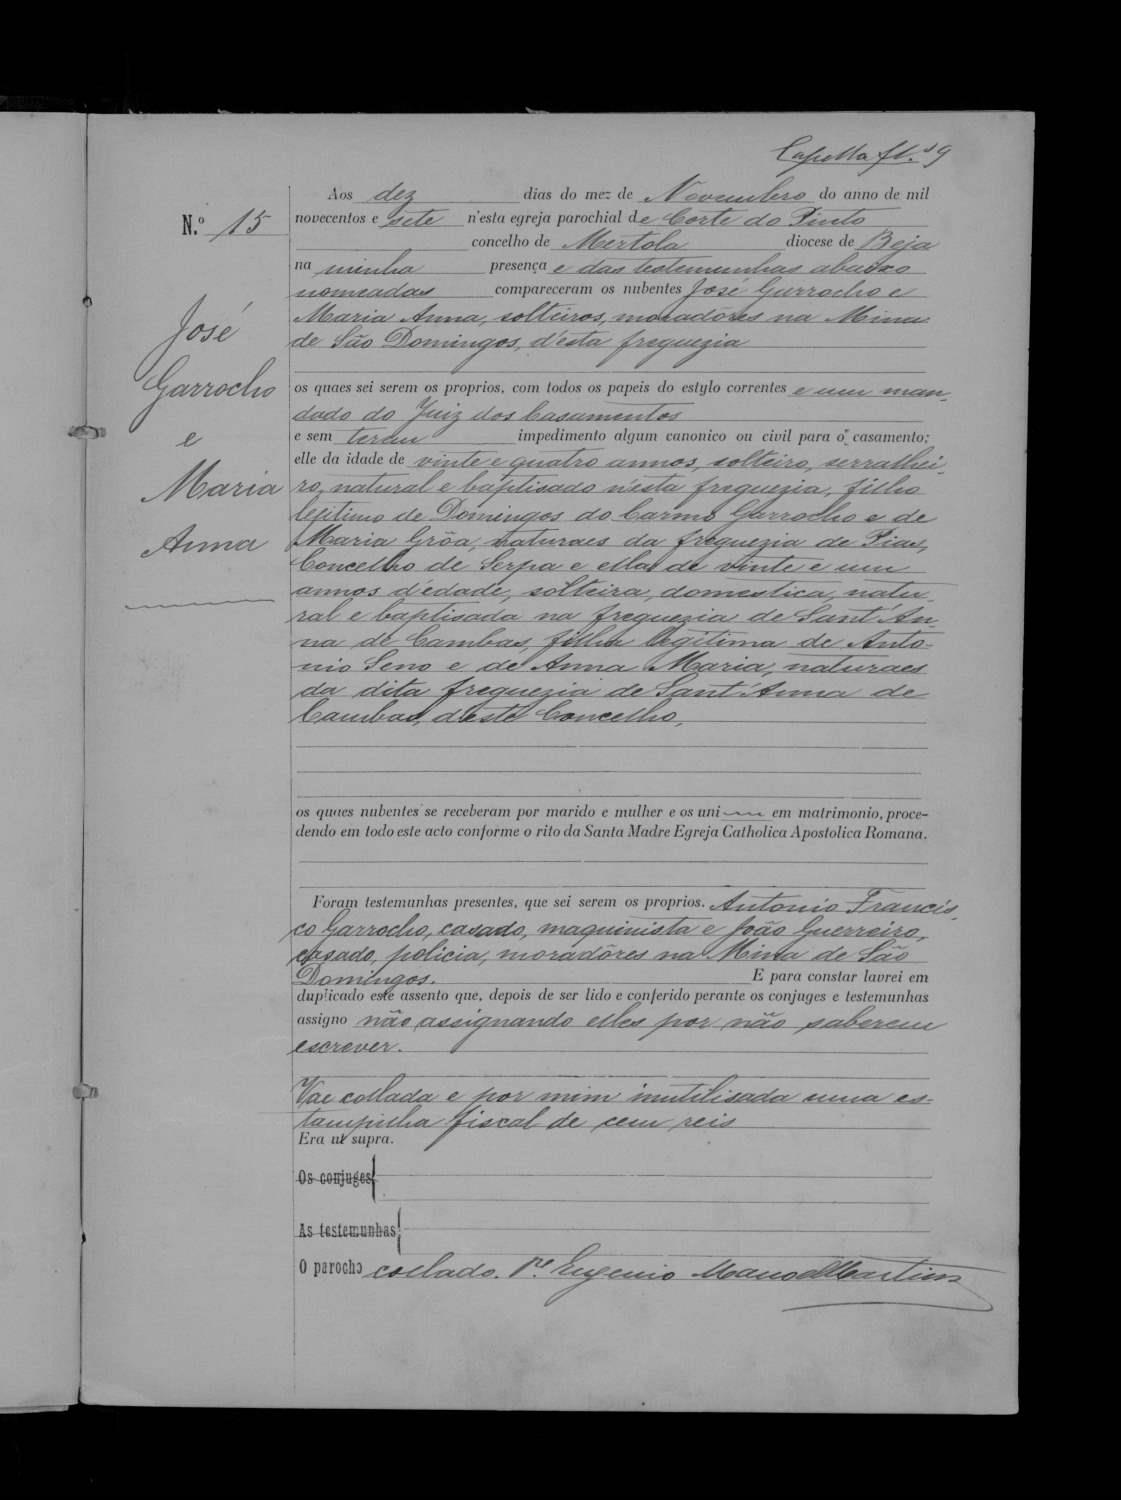 Capella fl.s 9
Aos dez dias do mez de Novembro do anno de mil
N.º 15
novecentos e sete n'esta egreja parochial de Corte do Pinto
concelho de Mertola diocese de Beja
na minha presença e das testemunhas abaixo
nomeadas compareceram os nubentes José Garrocho e
Maria Anna, solteiros, moradôres na Mina
de São Domingos, d'esta freguezia
José
Garrocho
e
Maria
Anna
os quaes sei serem os proprios, com todos os papeis do estylo correntes e um man-
dado do Juiz dos Casamentos
e sem terem impedimento algum canonico ou civil para o casamento;
elle da idade de vinte e quatro annos, solteiro, serralhei-
ro, natural e baptisado n'esta freguezia, filho
legitimo de Domingos do Carmo Garrocho e de
Maria Grôa, naturaes da freguezia de Pias,
Concelho de Serpa e ella de vinte e um
annos d'edade, solteira, domestica, natu-
ral e baptisada na freguezia de Sant'An-
na de Cambas, filha legitima de Anto-
nio Seno e de Anna Maria, naturaes
da dita freguezia de Sant'Anna de
Cambas, d'este Concelho,
os quaes nubentes se receberam por marido e mulher e os uni em matrimonio, proce-
dendo em todo este acto conforme o rito da Santa Madre Egreja Catholica Apostolica Romana.
Foram testemunhas presentes, que sei serem os proprios. Antonio Francis-
co Garrocho, casado, maquinista e João Guerreiro,
casado, policia, moradôres na Mina de São
Domingos. E para constar lavrei em
duplicado este assento que, depois de ser lido e conferido perante os conjuges e testemunhas
assigno não assignando elles por não saberem
escrever.
Vae collada e por mim inutilisada uma es-
tampilha fiscal de cem reis
Era ut supra.
Os conjuges
As testemunhas
O parocho collado. P.e Eugenio Manoel Martins